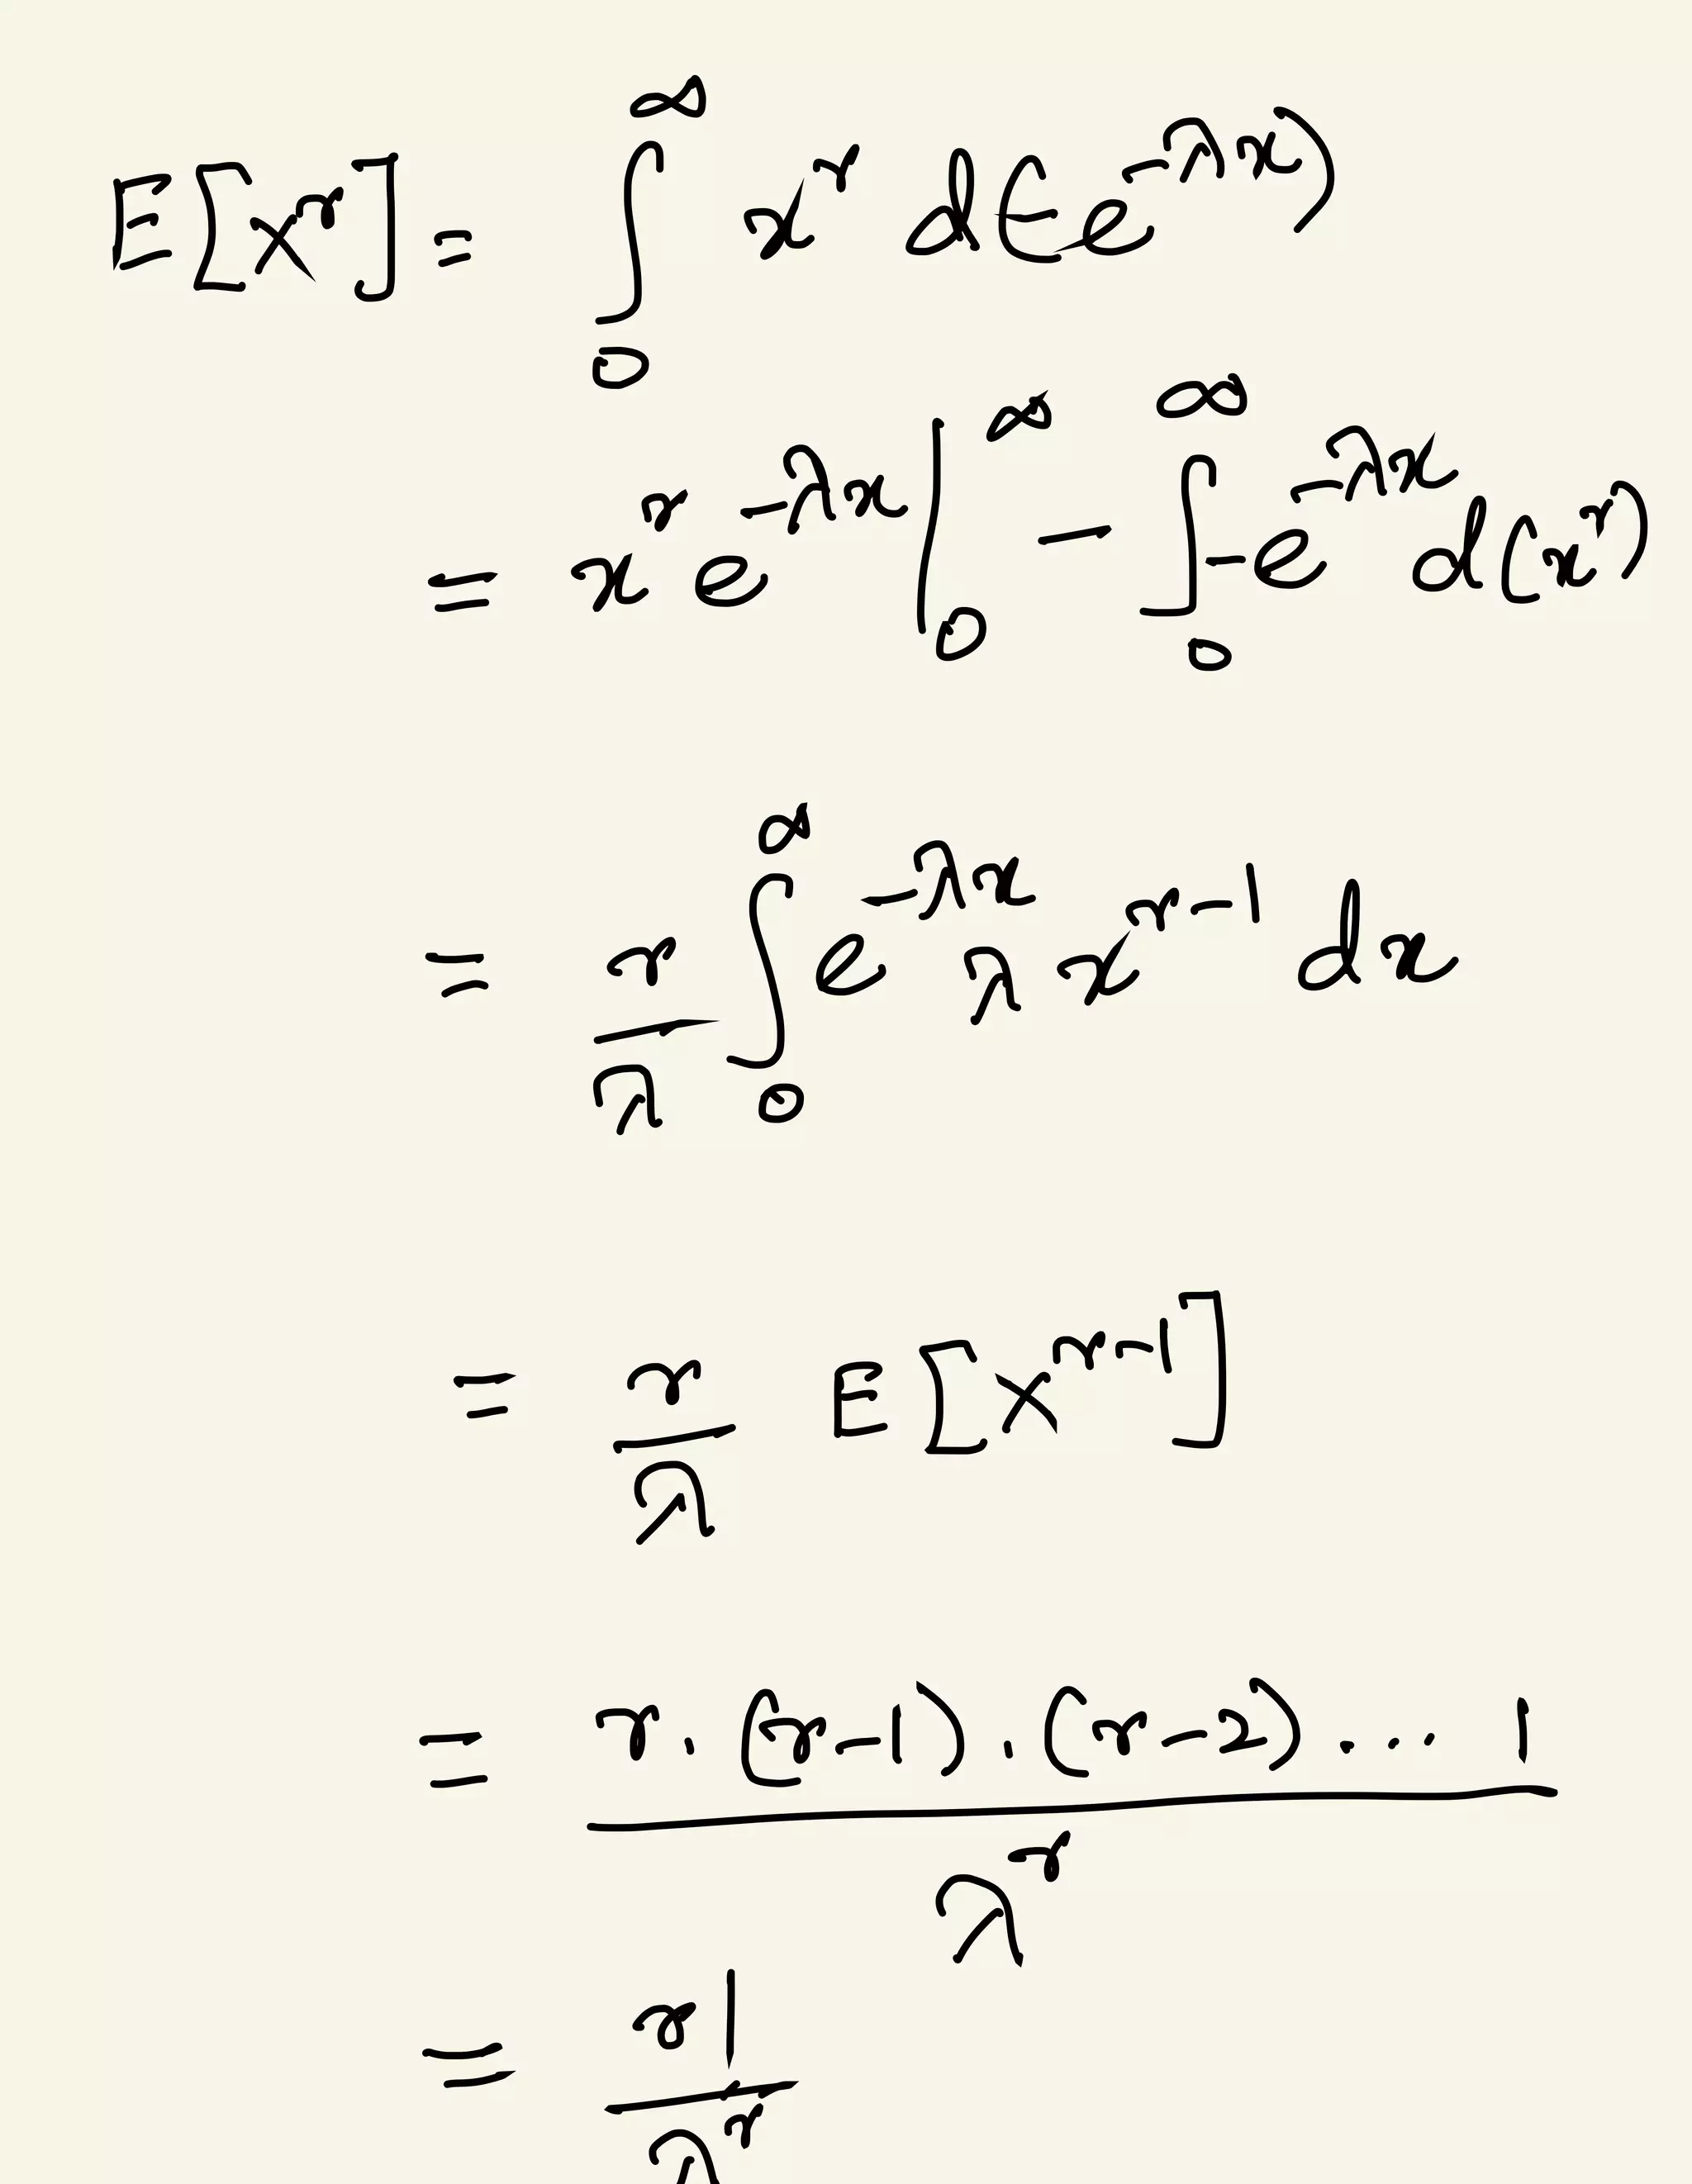 E[X^r] = ∫_0^∞ x^r d(-e^{-λx})
= x^r e^{-λx} |_0^∞ - ∫_0^∞ -e^{-λx} d(x^r)
= r/λ ∫_0^∞ e^{-λx} λ x^{r-1} dx
= r/λ E[X^{r-1}]
= r.(r-1).(r-2)... 1 / λ^r
= r! / λ^r